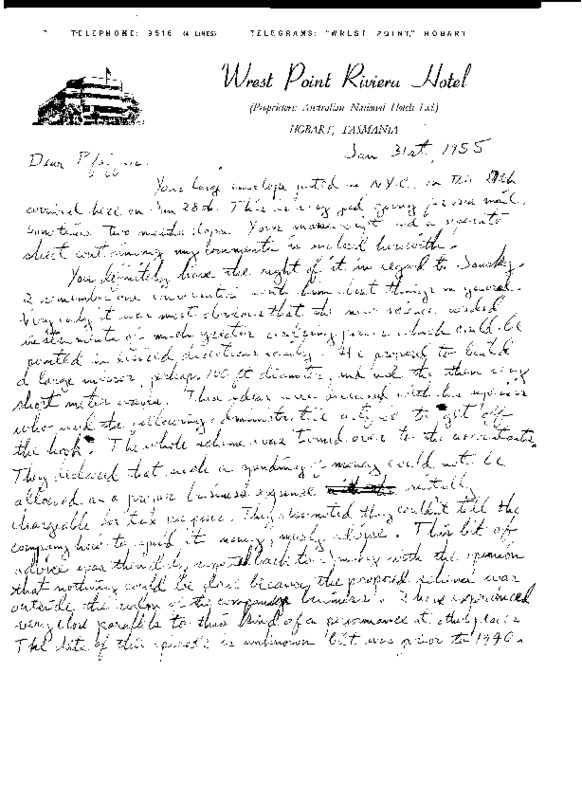 TELEPHONE: 9516 (4 LINES) TELEGRAMS: "WREST POINT," HOBART
Wrest Point Riviera Hotel
(Proprietors: Australian National Hotels Ltd.)
HOBART, TASMANIA
Jan 31st, 1955
Dear
Your large envelope posted in N.Y.C. on the
arrived here on Jan 28th. This is very good going for sea mail,
sometimes two months elapse. Your manuscript and a separate
sheet containing my comments is enclosed herewith.
You definitely have the right of it in regard to Jansky.
I remember one conversation with him about things in general.
Very early it was most obvious that the new science needed
instruments of much greater resolving power which could be
pointed in desired directions easily. He proposed to build
a large mirror, perhaps 100 ft diameter, and use the then very
short meter waves. These ideas were discussed with his superior
who used the following administrative to get off
the hook. The whole scheme was turned over to the accountants.
They declared that such a spending of money could not be
allowed as a proper business expense
chargeable for tax purposes. They also noted they couldn't tell the
company how to spend it money, merely advise. This bit of
advice was reported back to Jansky with the opinion
that nothing could be done because the proposed scheme was
outside the realm of the company business. I have experienced
very close parallels to this kind of a performance at other places.
The date of this episode is unknown but was prior to 1940.